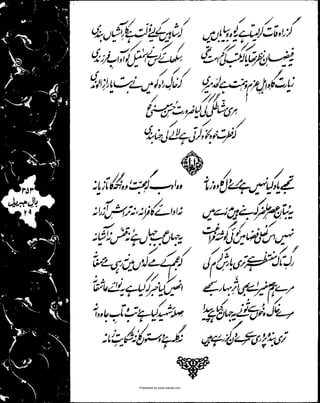 گزر اوقات کر لیتا ہے یہ کوہ و بیاباں میں کہ شاہیں کے لیے ذلّت ہے کارِ آشیاں بندی
یہ فیضانِ نظر تھا یا کہ مکتب کی کرامت تھی سکھائے کس نے اسمٰعیلؑ کو آدابِ فرزندی
زیارت گاہِ اہلِ عزم و ہمّت ہے لحد میری کہ خاکِ راہ کو میں نے بتایا رازِ الوندی
مری مشّاطگی کی کیا ضرورت حُسنِ معنی کو
کہ فطرت خود بخود کرتی ہے لالے کی حنا بندی
تجھے یاد کیا نہیں ہے مرے دل کا وہ زمانہ وہ ادب گہِ محبّت، وہ نگہ کا تازیانہ
یہ بُتانِ عصرِ حاضر کہ بنے ہیں مدرسے میں نہ ادائے کافرانہ، نہ تراشِ آزرانہ
نہیں اس کھلی فضا میں کوئی گوشۂ فراغت یہ جہاں عجب جہاں ہے نہ قفس نہ آشیانہ
رگِ تاک منتظر ہے تری بارشِ کرم کی کہ عجم کے مے کدوں میں نہ رہی مئے مغانہ
مرے ہم صفیر اسے بھی اثرِ بہار سمجھے انہیں کیا خبر کہ کیا ہے یہ نوائے عاشقانہ
مرے خاک و خوں سے تُو نے یہ جہاں کیا ہے پیدا صلۂ شہید کیا ہے تب و تابِ جاودانہ
تری بندہ پروری سے مرے دن گزر رہے ہیں نہ گلہ ہے دوستوں کا نہ شکایتِ زمانہ
۳۵۳
بالِ جبریل
۲۹
Presented by www.ziaraat.com